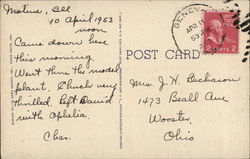 Moline, Ill
10 April 1953
noon
Came down here
this morning.
Went thru the model
plant. Chuck very
thrilled. Left David
with Ophelia.
Chas.
GENEVA
POST CARD
2 CENTS 2
Mrs. J. H. Dickason
1473 Beall Ave
Wooster,
Ohio